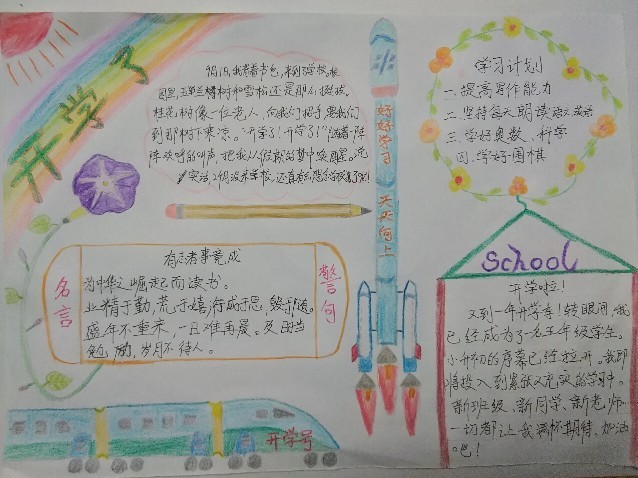 开学了
9月1日,我背着书包,来到了学校。校
园里,玉兰、橘树和雪松还是那么挺拔。
桂花树像一位老人,向我们招手,要我们
到那树下乘凉。“开学了!开学了!”随着一阵
阵欢呼的叫声,把我从假期的梦中唤醒。说
实话,
学习计划
一、提高写作能力
二、坚持每天朗读语文、英语
三、学好奥数、科学
四、学好围棋
好好学习 天天向上
名言
警句
有志者事竟成
为中华之崛起而读书。
业精于勤,荒于嬉;行成于思,毁于随。
盛年不重来,一日难再晨。及时当
勉励,岁月不待人。
School
开学啦!
又到一年开学季!转眼间,我
已经成为了一名五年级学生。
小升初的序幕已经拉开。我即
将投入到紧张又充实的学习中。
新班级、新同学、新老师
一切都让我满怀期待,加油
吧!
开学号